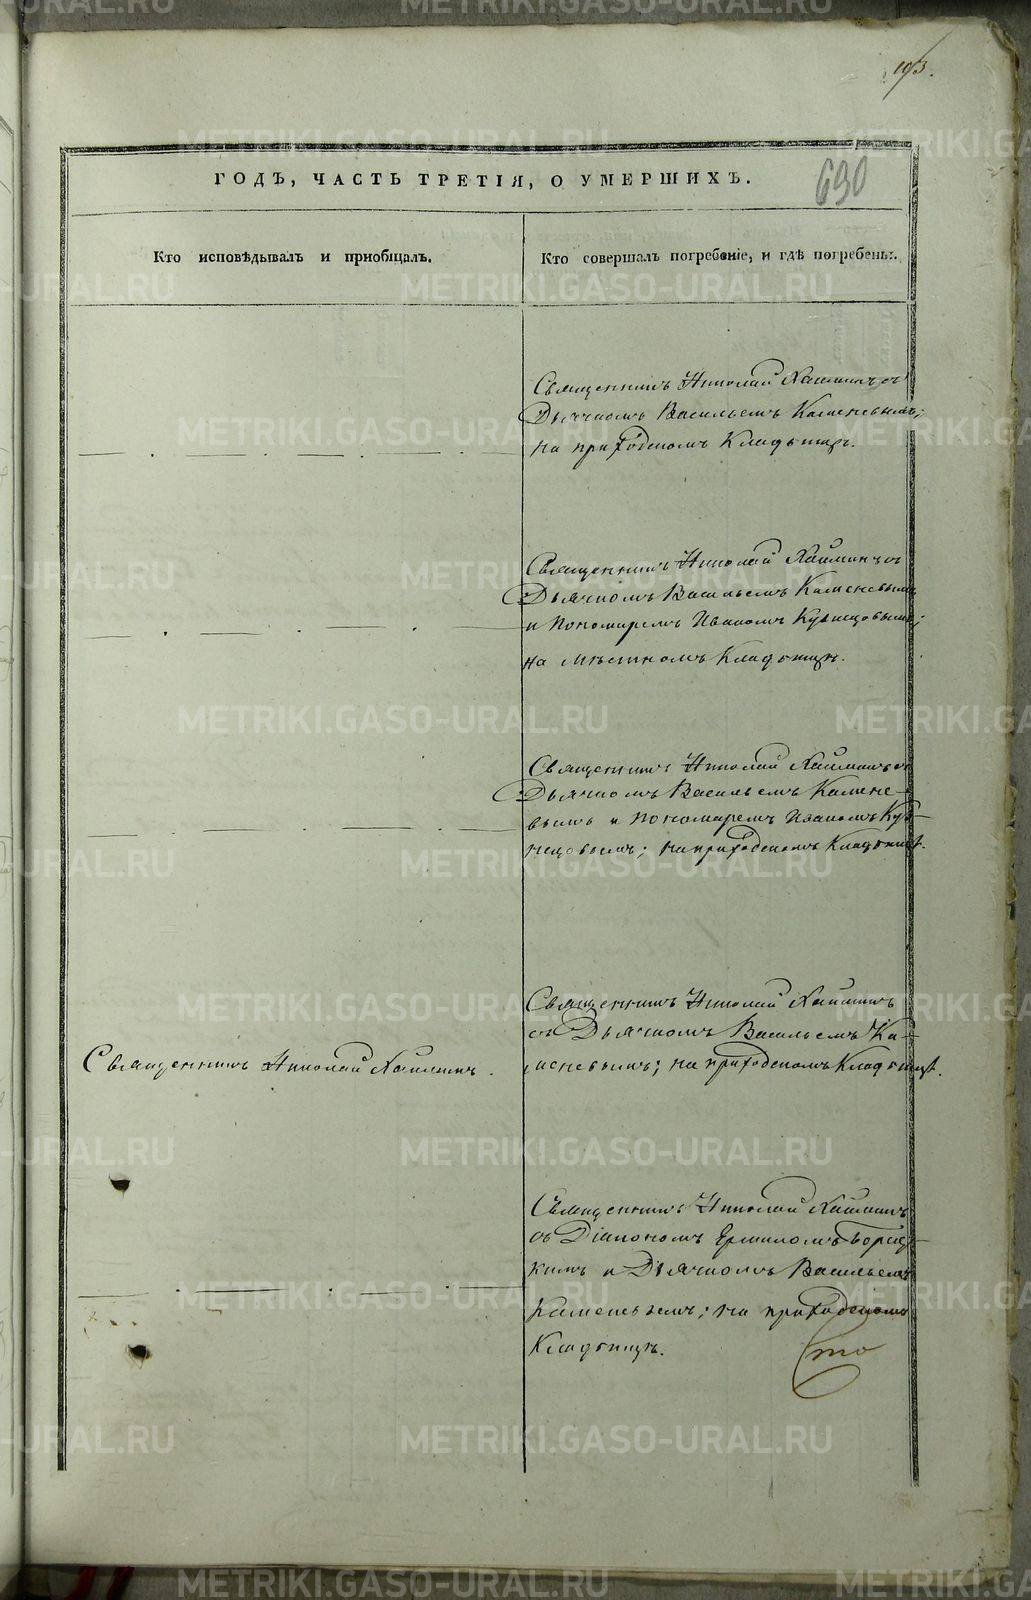 193.
690
ГОДЪ, ЧАСТЬ ТРЕТІЯ, О УМЕРШИХЪ.
Кто исповѣдывалъ и пріобщалъ.
Кто совершалъ погребеніе, и гдѣ погребены.
Священникъ Николай Хайминъ съ
Дьячкомъ Васильемъ Каменевымъ;
на приходскомъ Кладбищѣ.
Священникъ Николай Хайминъ съ
Дьячкомъ Васильемъ Каменевымъ
и Пономаремъ Иваномъ Кузнецовымъ;
на мѣстномъ Кладбищѣ.
Священникъ Николай Хайминъ съ
Дьячкомъ Васильемъ Камене-
вымъ и Пономаремъ Иваномъ Куз-
нецовымъ; на приходскомъ Кладбищѣ.
Священникъ Николай Хайминъ.
Священникъ Николай Хайминъ
съ Дьячкомъ Васильемъ Ка-
меневымъ; на приходскомъ Кладбищѣ.
Священникъ Николай Хайминъ
съ Діакономъ Ермиломъ
и Дьячкомъ Васильемъ
Каменевымъ; на приходскомъ
Кладбищѣ.
METRIKI.GASO-URAL.RU